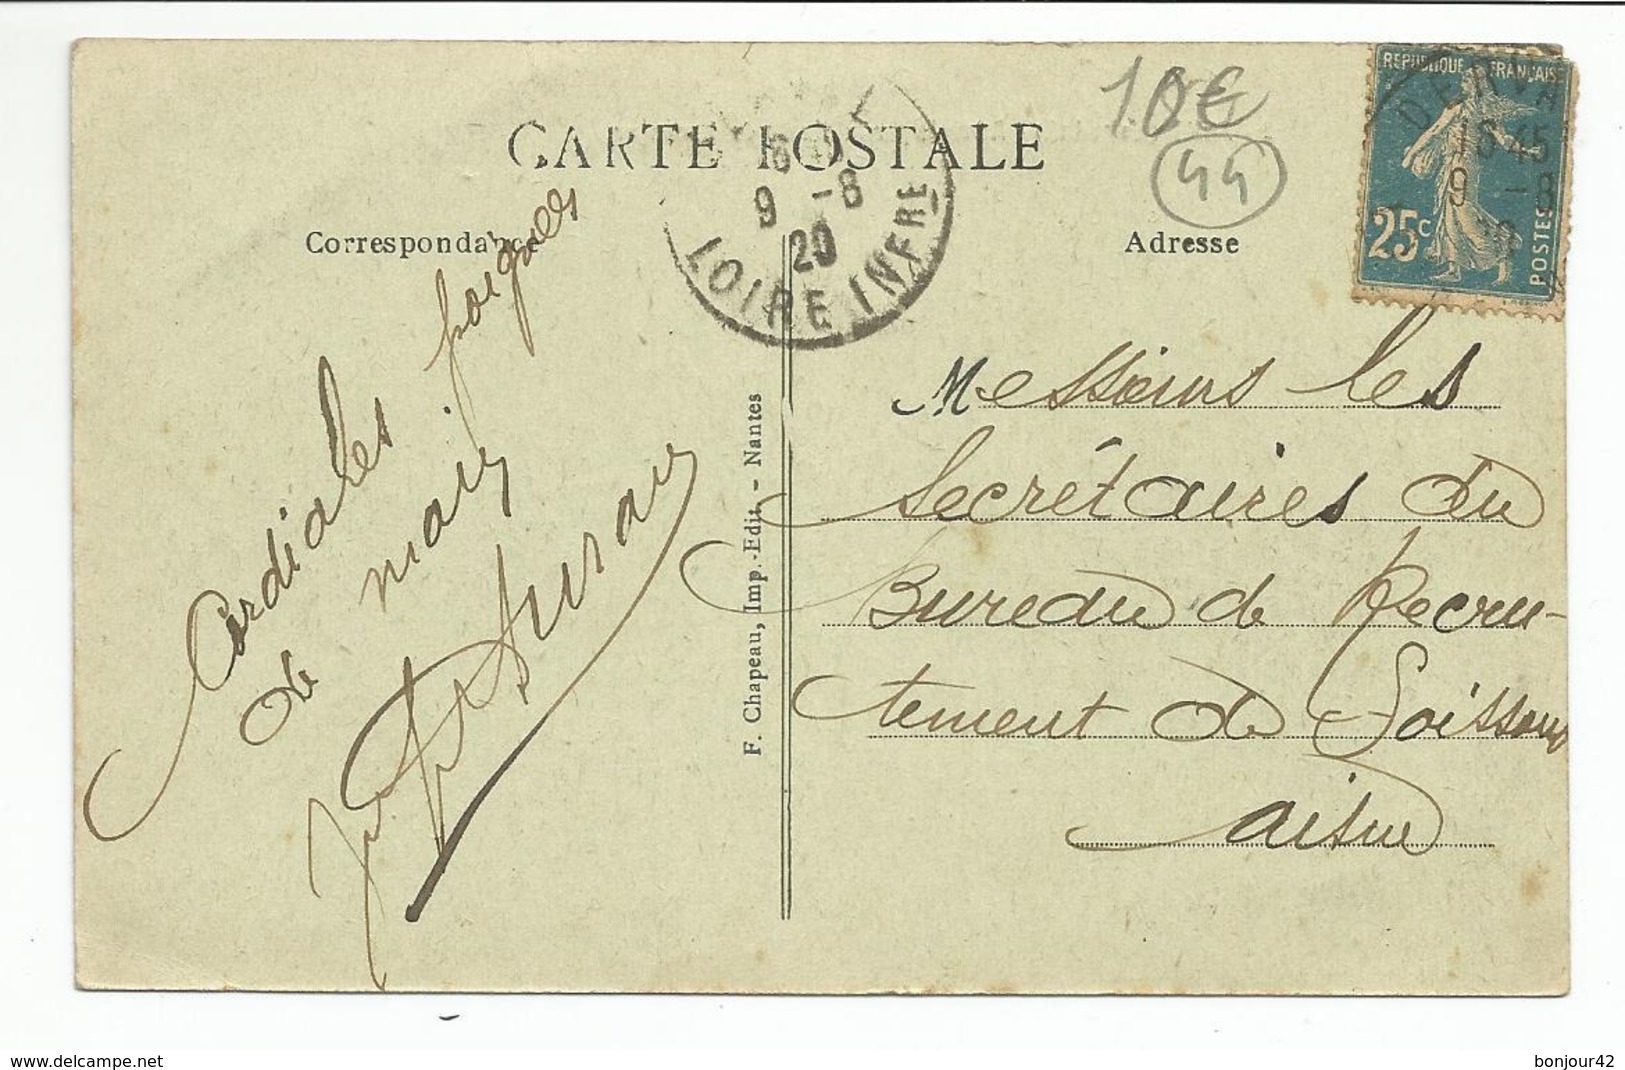 CARTE POSTALE
10€
44
Correspondance
Adresse
RÉPUBLIQUE FRANÇAISE
25c
POSTES
DERVA
16 45
9 -8
9 -8
20
LOIRE INFRE
Cordiales poignées
de main
F. Chapeau, Imp.-Edit. - Nantes
Messieurs les
Secrétaires du
Bureau de Recru-
tement de Soissons
Aisne
www.delcampe.net
bonjour42